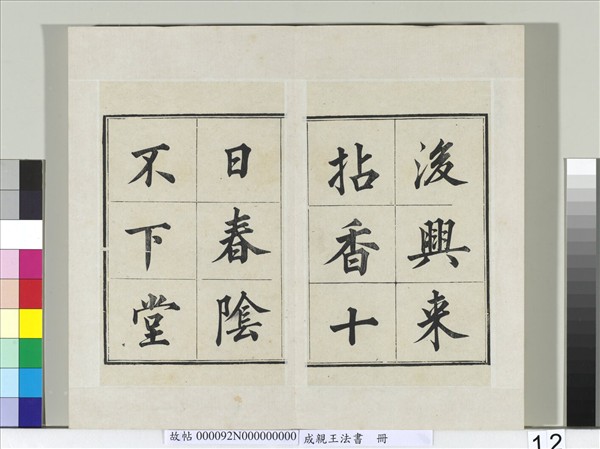 後興来
拈香十
日春陰
不下堂
故帖 000092N000000000 成親王法書 冊
12